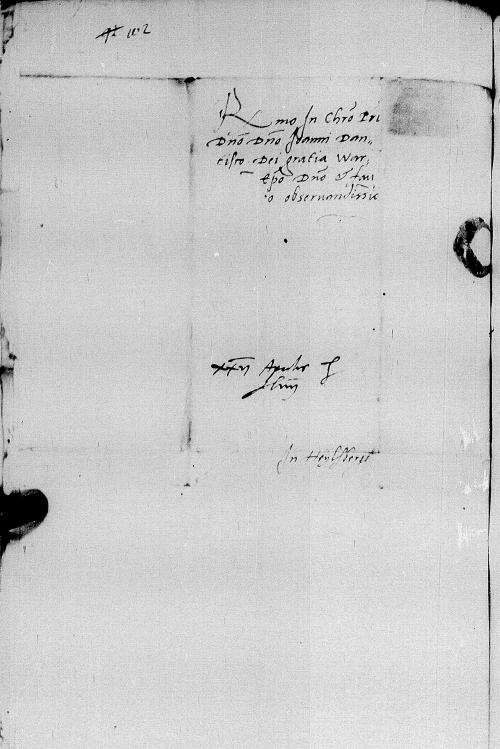 Rmo In Chro Pri
Dno Dno Joanni Dan„
tisco Dei gratia War„
epo Dno & fau
o obseruandissi
XXVI Aprilis
In Heylsberg